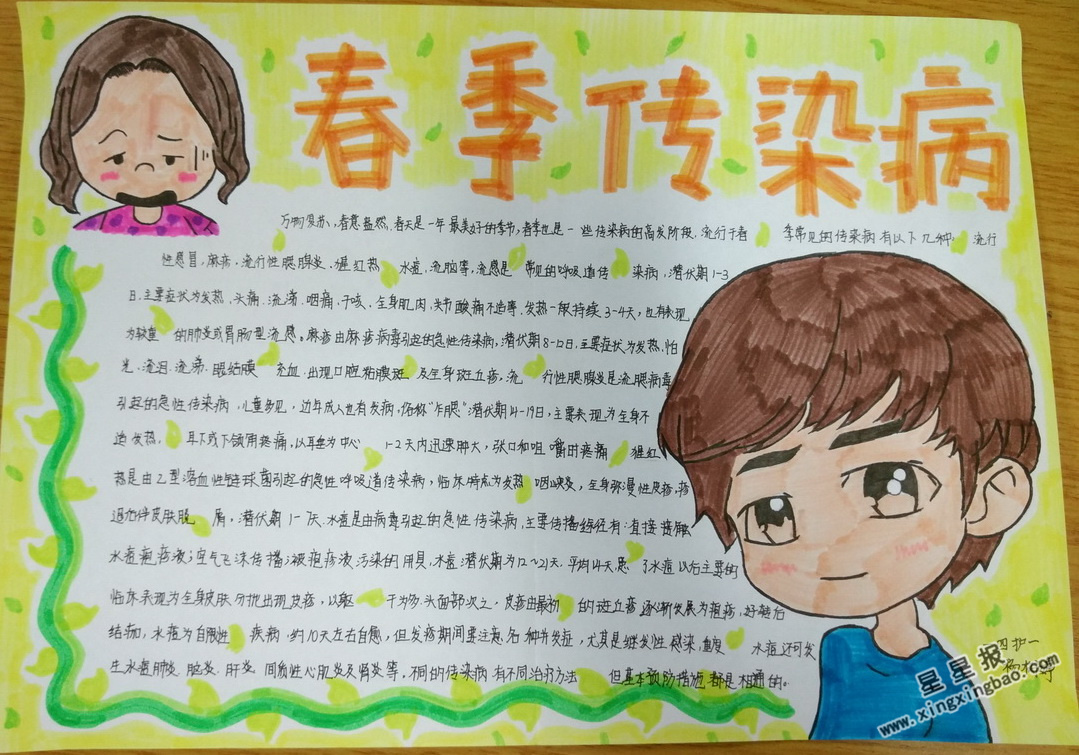 春季传染病
万物复苏，春意盎然，春天是一年最美好的季节，春季也是一些传染病的高发阶段，流行于春季常见的传染病有以下几种：流行
性感冒，麻疹，流行性腮腺炎，猩红热，水痘，流脑等，流感是常见的呼吸道传染病，潜伏期1-3
日，主要症状为发热，头痛，流涕，咽痛，干咳，全身肌肉，关节酸痛不适等，发热一般持续3-4天，也有表现
为较重的肺炎或胃肠型流感。麻疹由麻疹病毒引起的急性传染病，潜伏期8-12日，主要症状为发热，怕
光，流泪，流涕，眼结膜充血，出现口腔粘膜斑及全身斑丘疹，流行性腮腺炎是流腮病毒
引起的急性传染病，儿童多见，边年成人也有发病，俗称"乍腮"潜伏期14-19日，主要表现为全身不
适发热，耳下或下颌角疼痛，以耳垂为中心1-2天内迅速肿大，张口和咀嚼时疼痛，猩红
热是由乙型溶血性链球菌引起的急性呼吸道传染病，临床特点为发热，咽峡炎，全身弥漫性皮疹，疹
退后伴皮肤脱屑，潜伏期1-7天，水痘是由病毒引起的急性传染病，主要传播途径有：直接接触
水痘疱疹液；空气飞沫传播；被疱疹液污染的用具，水痘潜伏期为12~21天，平均14天，患了水痘以后主要的
临床表现为全身皮肤分批出现皮疹，以躯干为多，头面部次之，皮疹由最初的斑丘疹逐渐发展为疱疹，好转后
结痂，水痘为自限性疾病，约10天左右自愈，但发疹期间要注意各种并发症，尤其是继发性感染，重度水痘还可发
生水痘肺炎，脑炎，肝炎，间质性心肌炎及肾炎等，不同的传染病有不同治疗方法，但基本预防措施都是相通的。
四护一
星星报
www.xingxingbao.com